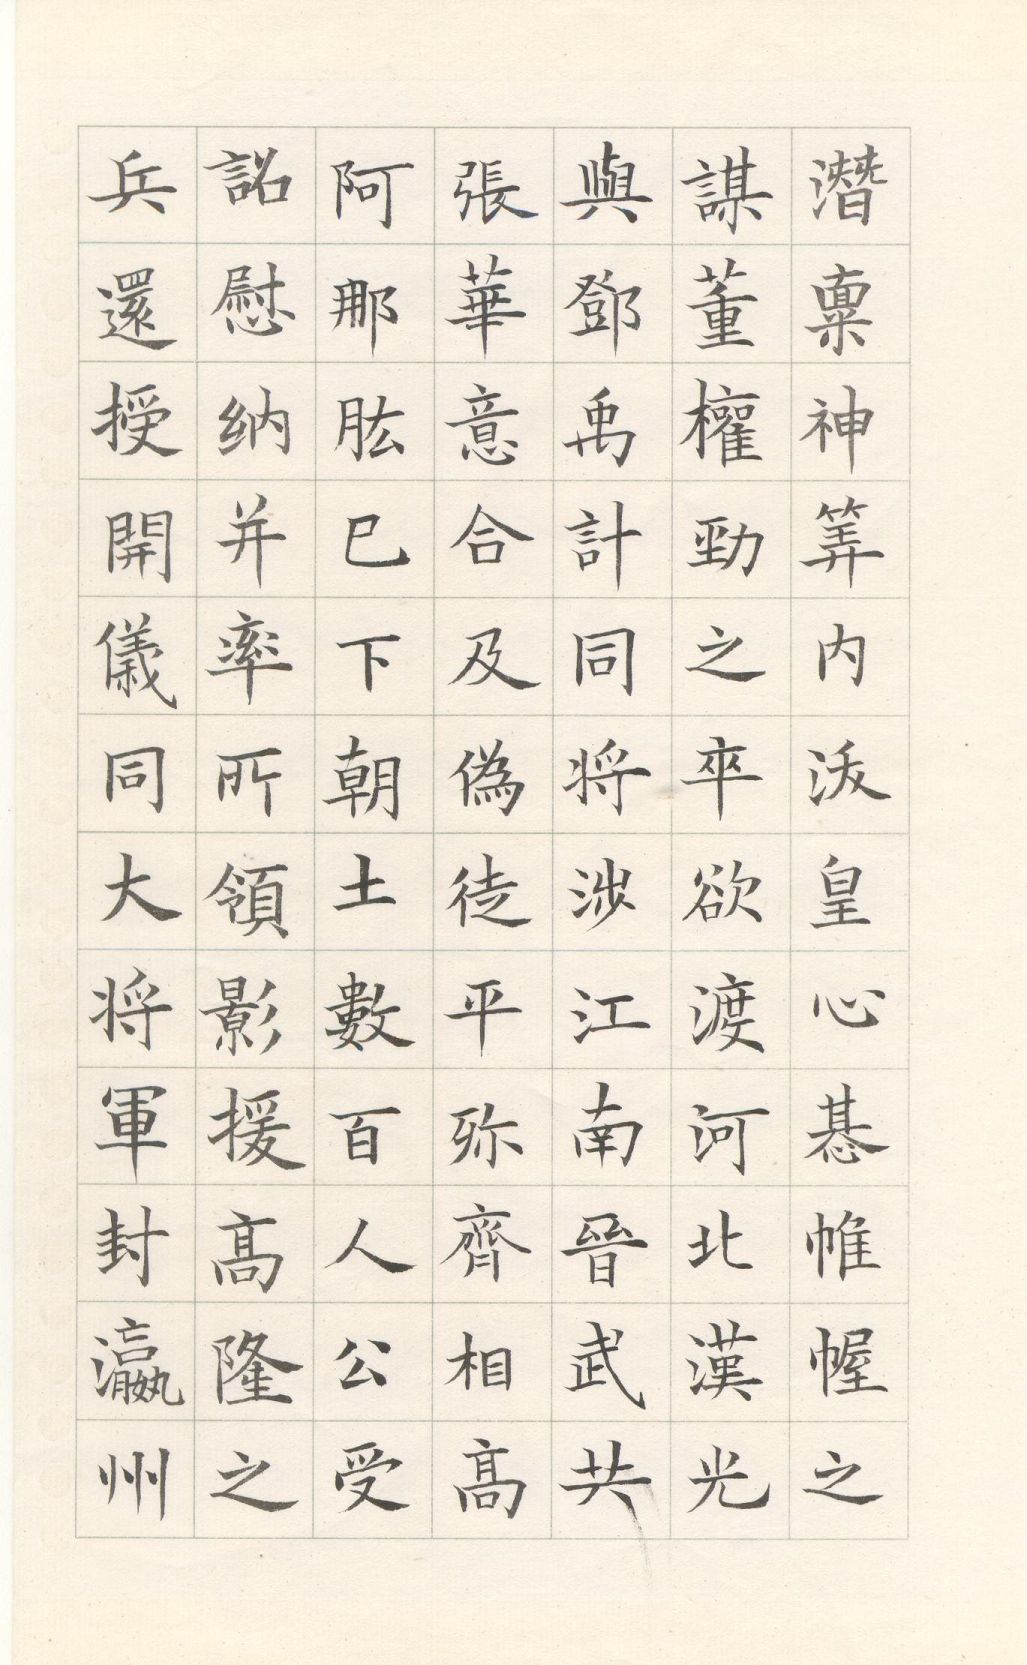 潛稟神筭内沃皇心惎帷幄之
謀董權勁之卒欲渡河北漢光
與鄧禹計同将涉江南晉武共
張華意合及偽徒平殄齊相高
阿那肱已下朝士數百人公受
詔慰纳并率所領影援高隆之
兵還授開儀同大将軍封瀛州